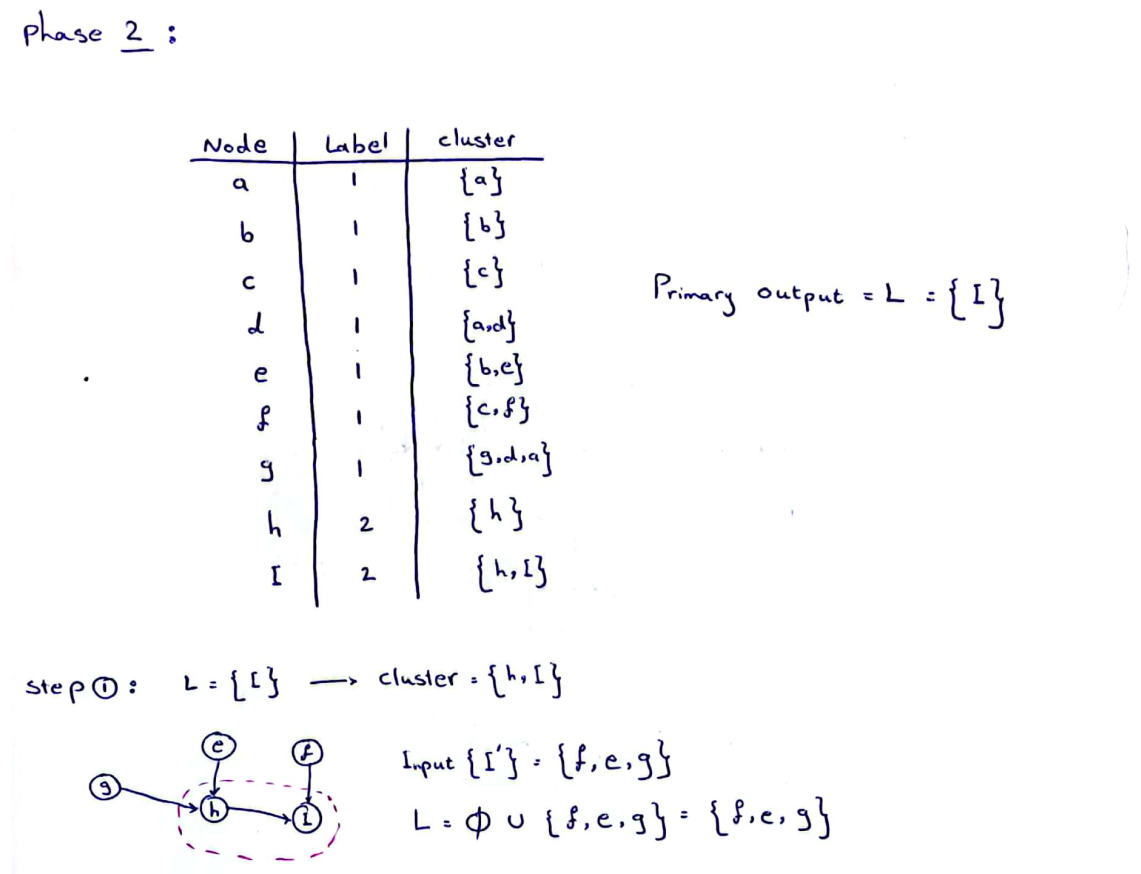 phase 2 :
Node Label cluster
a 1 {a}
b 1 {b}
c 1 {c}
d 1 {a,d}
e 1 {b,e}
f 1 {c,f}
g 1 {g,d,a}
h 2 {h}
I 2 {h,I}
Primary output = L = {I}
step ①: L = {I} → cluster = {h,I}
e f
g
h i
Input {I'} = {f,e,g}
L = ϕ ∪ {f,e,g} = {f,e,g}